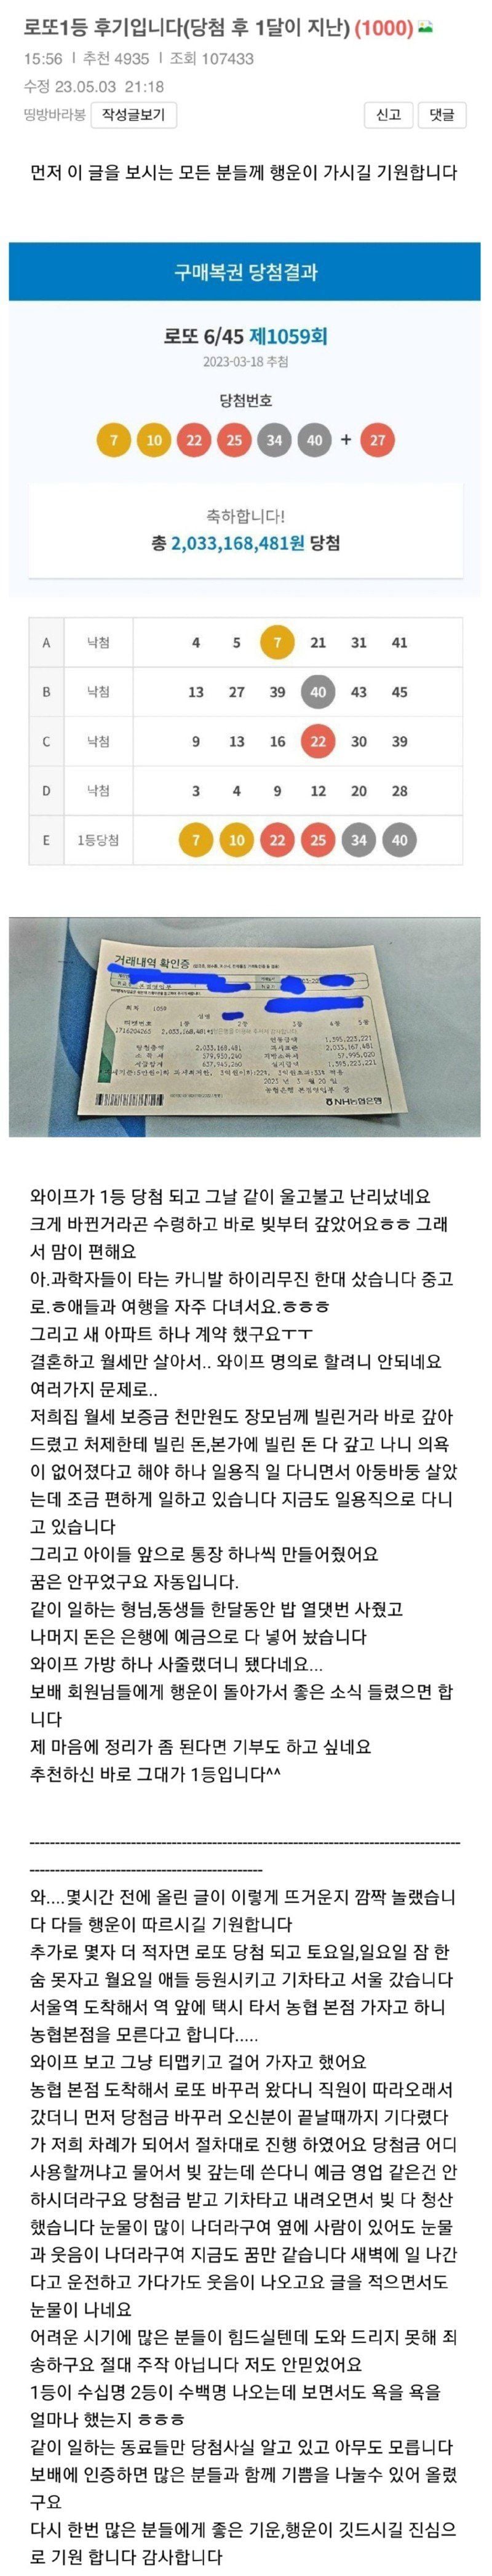 로또1등 후기입니다(당첨 후 1달이 지난) (1000)
15:56 l 추천 4935 l 조회 107433
수정 23.05.03 21:18
띵방바라봉 작성글보기 신고 댓글
먼저 이 글을 보시는 모든 분들께 행운이 가시길 기원합니다
구매복권 당첨결과
로또 6/45 제1059회
2023-03-18 추첨
당첨번호
7 10 22 25 34 40 + 27
축하합니다!
총 2,033,168,481원 당첨
A 낙첨 4 5 7 21 31 41
B 낙첨 13 27 39 40 43 45
C 낙첨 9 13 16 22 30 39
D 낙첨 3 4 9 12 20 28
E 1등당첨 7 10 22 25 34 40
거래내역 확인증
회차 1059
성명
1등 2등 3등 4등 5등
1716204265 2,033,168,481
당첨금액 2,033,168,481
소득세 579,950,240
세금합계 637,945,260
1,395,223,221
2,033,167,481
지방소득세 57,995,020
실지급액 1,395,223,221
2023 년 3 월 20 일
농협은행 본점영업부 장
NH농협은행
와이프가 1등 당첨 되고 그날 같이 울고불고 난리났네요
크게 바뀐거라곤 수령하고 바로 빚부터 갚았어요ㅎㅎ 그래
서 맘이 편해요
아.과학자들이 타는 카니발 하이리무진 한대 샀습니다 중고
로.ㅎ애들과 여행을 자주 다녀서요.ㅎㅎㅎ
그리고 새 아파트 하나 계약 했구요ㅜㅜ
결혼하고 월세만 살아서.. 와이프 명의로 할려니 안되네요
여러가지 문제로..
저희집 월세 보증금 천만원도 장모님께 빌린거라 바로 갚아
드렸고 처제한테 빌린 돈,본가에 빌린 돈 다 갚고 나니 의욕
이 없어졌다고 해야 하나 일용직 일 다니면서 아둥바둥 살았
는데 조금 편하게 일하고 있습니다 지금도 일용직으로 다니
고 있습니다
그리고 아이들 앞으로 통장 하나씩 만들어줬어요
꿈은 안꾸었구요 자동입니다.
같이 일하는 형님,동생들 한달동안 밥 열댓번 사줬고
나머지 돈은 은행에 예금으로 다 넣어 놨습니다
와이프 가방 하나 사줄랬더니 됐다네요...
보배 회원님들에게 행운이 돌아가서 좋은 소식 들렸으면 합
니다
제 마음에 정리가 좀 된다면 기부도 하고 싶네요
추천하신 바로 그대가 1등입니다^^
--------------------------------------------------------------------------------
-------------------------------------------
와....몇시간 전에 올린 글이 이렇게 뜨거운지 깜짝 놀랬습니
다 다들 행운이 따르시길 기원합니다
추가로 몇자 더 적자면 로또 당첨 되고 토요일,일요일 잠 한
숨 못자고 월요일 애들 등원시키고 기차타고 서울 갔습니다
서울역 도착해서 역 앞에 택시 타서 농협 본점 가자고 하니
농협본점을 모른다고 합니다.....
와이프 보고 그냥 티맵키고 걸어 가자고 했어요
농협 본점 도착해서 로또 바꾸러 왔다니 직원이 따라오래서
갔더니 먼저 당첨금 바꾸러 오신분이 끝날때까지 기다렸다
가 저희 차례가 되어서 절차대로 진행 하였어요 당첨금 어디
사용할꺼냐고 물어서 빚 갚는데 쓴다니 예금 영업 같은건 안
하시더라구요 당첨금 받고 기차타고 내려오면서 빚 다 청산
했습니다 눈물이 많이 나더라구여 옆에 사람이 있어도 눈물
과 웃음이 나더라구여 지금도 꿈만 같습니다 새벽에 일 나간
다고 운전하고 가다가도 웃음이 나오고요 글을 적으면서도
눈물이 나네요
어려운 시기에 많은 분들이 힘드실텐데 도와 드리지 못해 죄
송하구요 절대 주작 아닙니다 저도 안믿었어요
1등이 수십명 2등이 수백명 나오는데 보면서도 욕을 욕을
얼마나 했는지 ㅎㅎㅎ
같이 일하는 동료들만 당첨사실 알고 있고 아무도 모릅니다
보배에 인증하면 많은 분들과 함께 기쁨을 나눌수 있어 올렸
구요
다시 한번 많은 분들에게 좋은 기운,행운이 깃드시길 진심으
로 기원 합니다 감사합니다